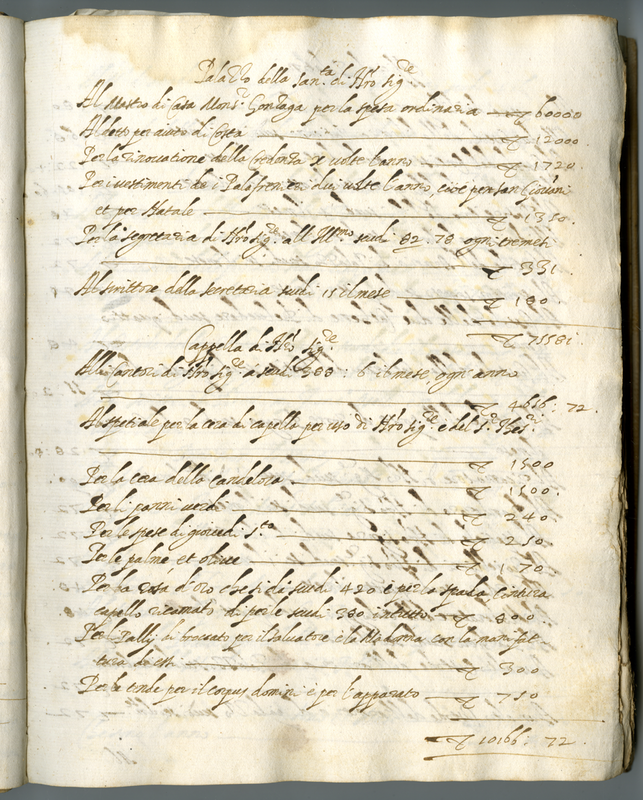 Palazzo della San.ta di N'ro Sig.re
Al Mastro di Casa Mons.r Gonzaga per la spesa ordinaria — ▽ 60000
Al detto per aiuto di Costa — ▽ 12000.
Per la rinovatione della Credenza x volte l'anno — ▽ 1720.
Per i vestimenti de i Palafrenieri dui volte l'anno, cioè per san Giovani
et per Natale — ▽ 1350.
Per la segretaria di N'ro Sig.re all Ill.mo scudi 82. 78 ogni tremesi
— ▽ 331.
Al scrittore della secretaria scudi 15 il mese — ▽ 180
▽ 75581
Cappella di N'ro Sig.re
Alli Cantori di N'ro Sig.re a scudi 388 : 6 il mese, ogni anno
— ▽ 4616 : 72.
Al spetiale per la cera di capella per uso di N'ro Sig.re e del
— ▽ 1500
Per la cera della candelora — ▽ 1500.
Per li panni verdi — ▽ 240.
Per le spese di giovedi s.to — ▽ 250
Per le palme et olive — ▽ 170
Per la rosa d'oro che si dà scudi 420 e per la spada cintura
capello ricamato di perle scudi 380 in tutto — ▽ 800
Per Pallij di brocato per il salvatore e la Madonna con la manifat
tura de essi — ▽ 300
Per le tende per il corpus domini e per l'apparato — ▽ 750
▽ 10166 : 72